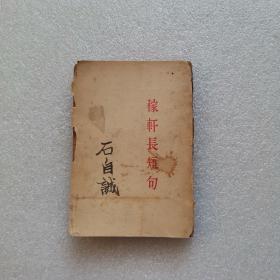 稼軒長短句
石自誠